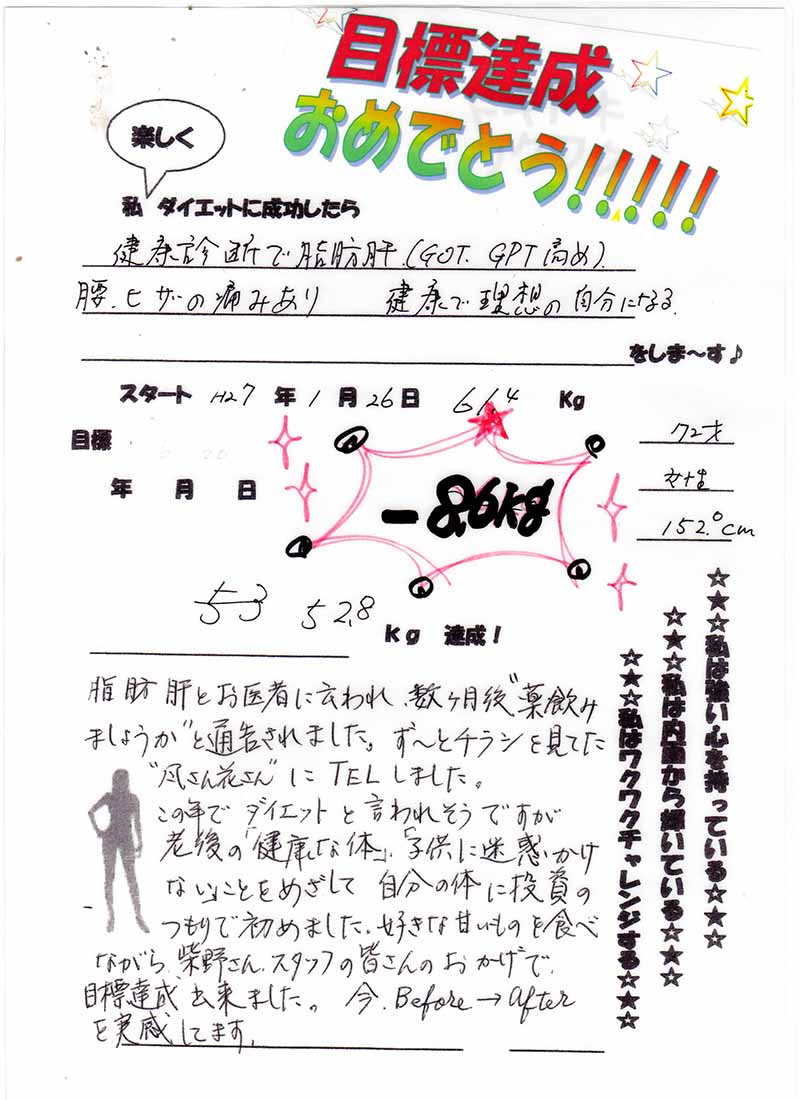 目標達成
おめでとう!!!!!
楽しく
私 ダイエットに成功したら
健康診断で脂肪肝.(GOT. GPT高め).
腰.ヒザの痛みあり 健康で理想の自分になる.
をしま〜す♪
スタート H27 年 1 月 26 日 61.4 Kg
目標
年 月 日
-8.6kg
72才
女性
152.0cm
53 52.8
kg 達成！
脂肪肝とお医者に云われ、数ヶ月後"薬飲み
ましょうか"と通告されました。ず〜とチラシを見てた
"凡さん花さん"にTELしました。
この年でダイエットと言われそうですが
老後の「健康な体」、「子供に迷惑かけ
ない」ことをめざして 自分の体に投資の
つもりで初めました.好きな甘いものを食べ
ながら、柴野さん.スタッフの皆さんのおかげで.
目標達成出来ました。 今.Before→After
を実感してます.
☆★☆私は強い心を持っている☆★☆
☆★☆私は内面から輝いている☆★☆
☆★☆私はワクワクチャレンジする☆★☆